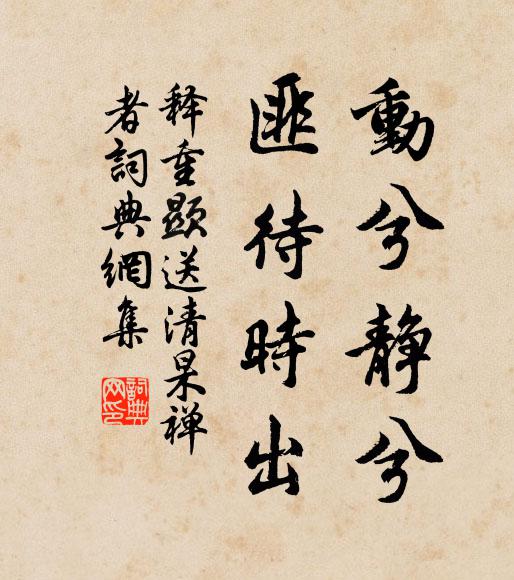 動兮静兮
匪待時出
释重顯送清杲禅
者詞典網集
詞典网印